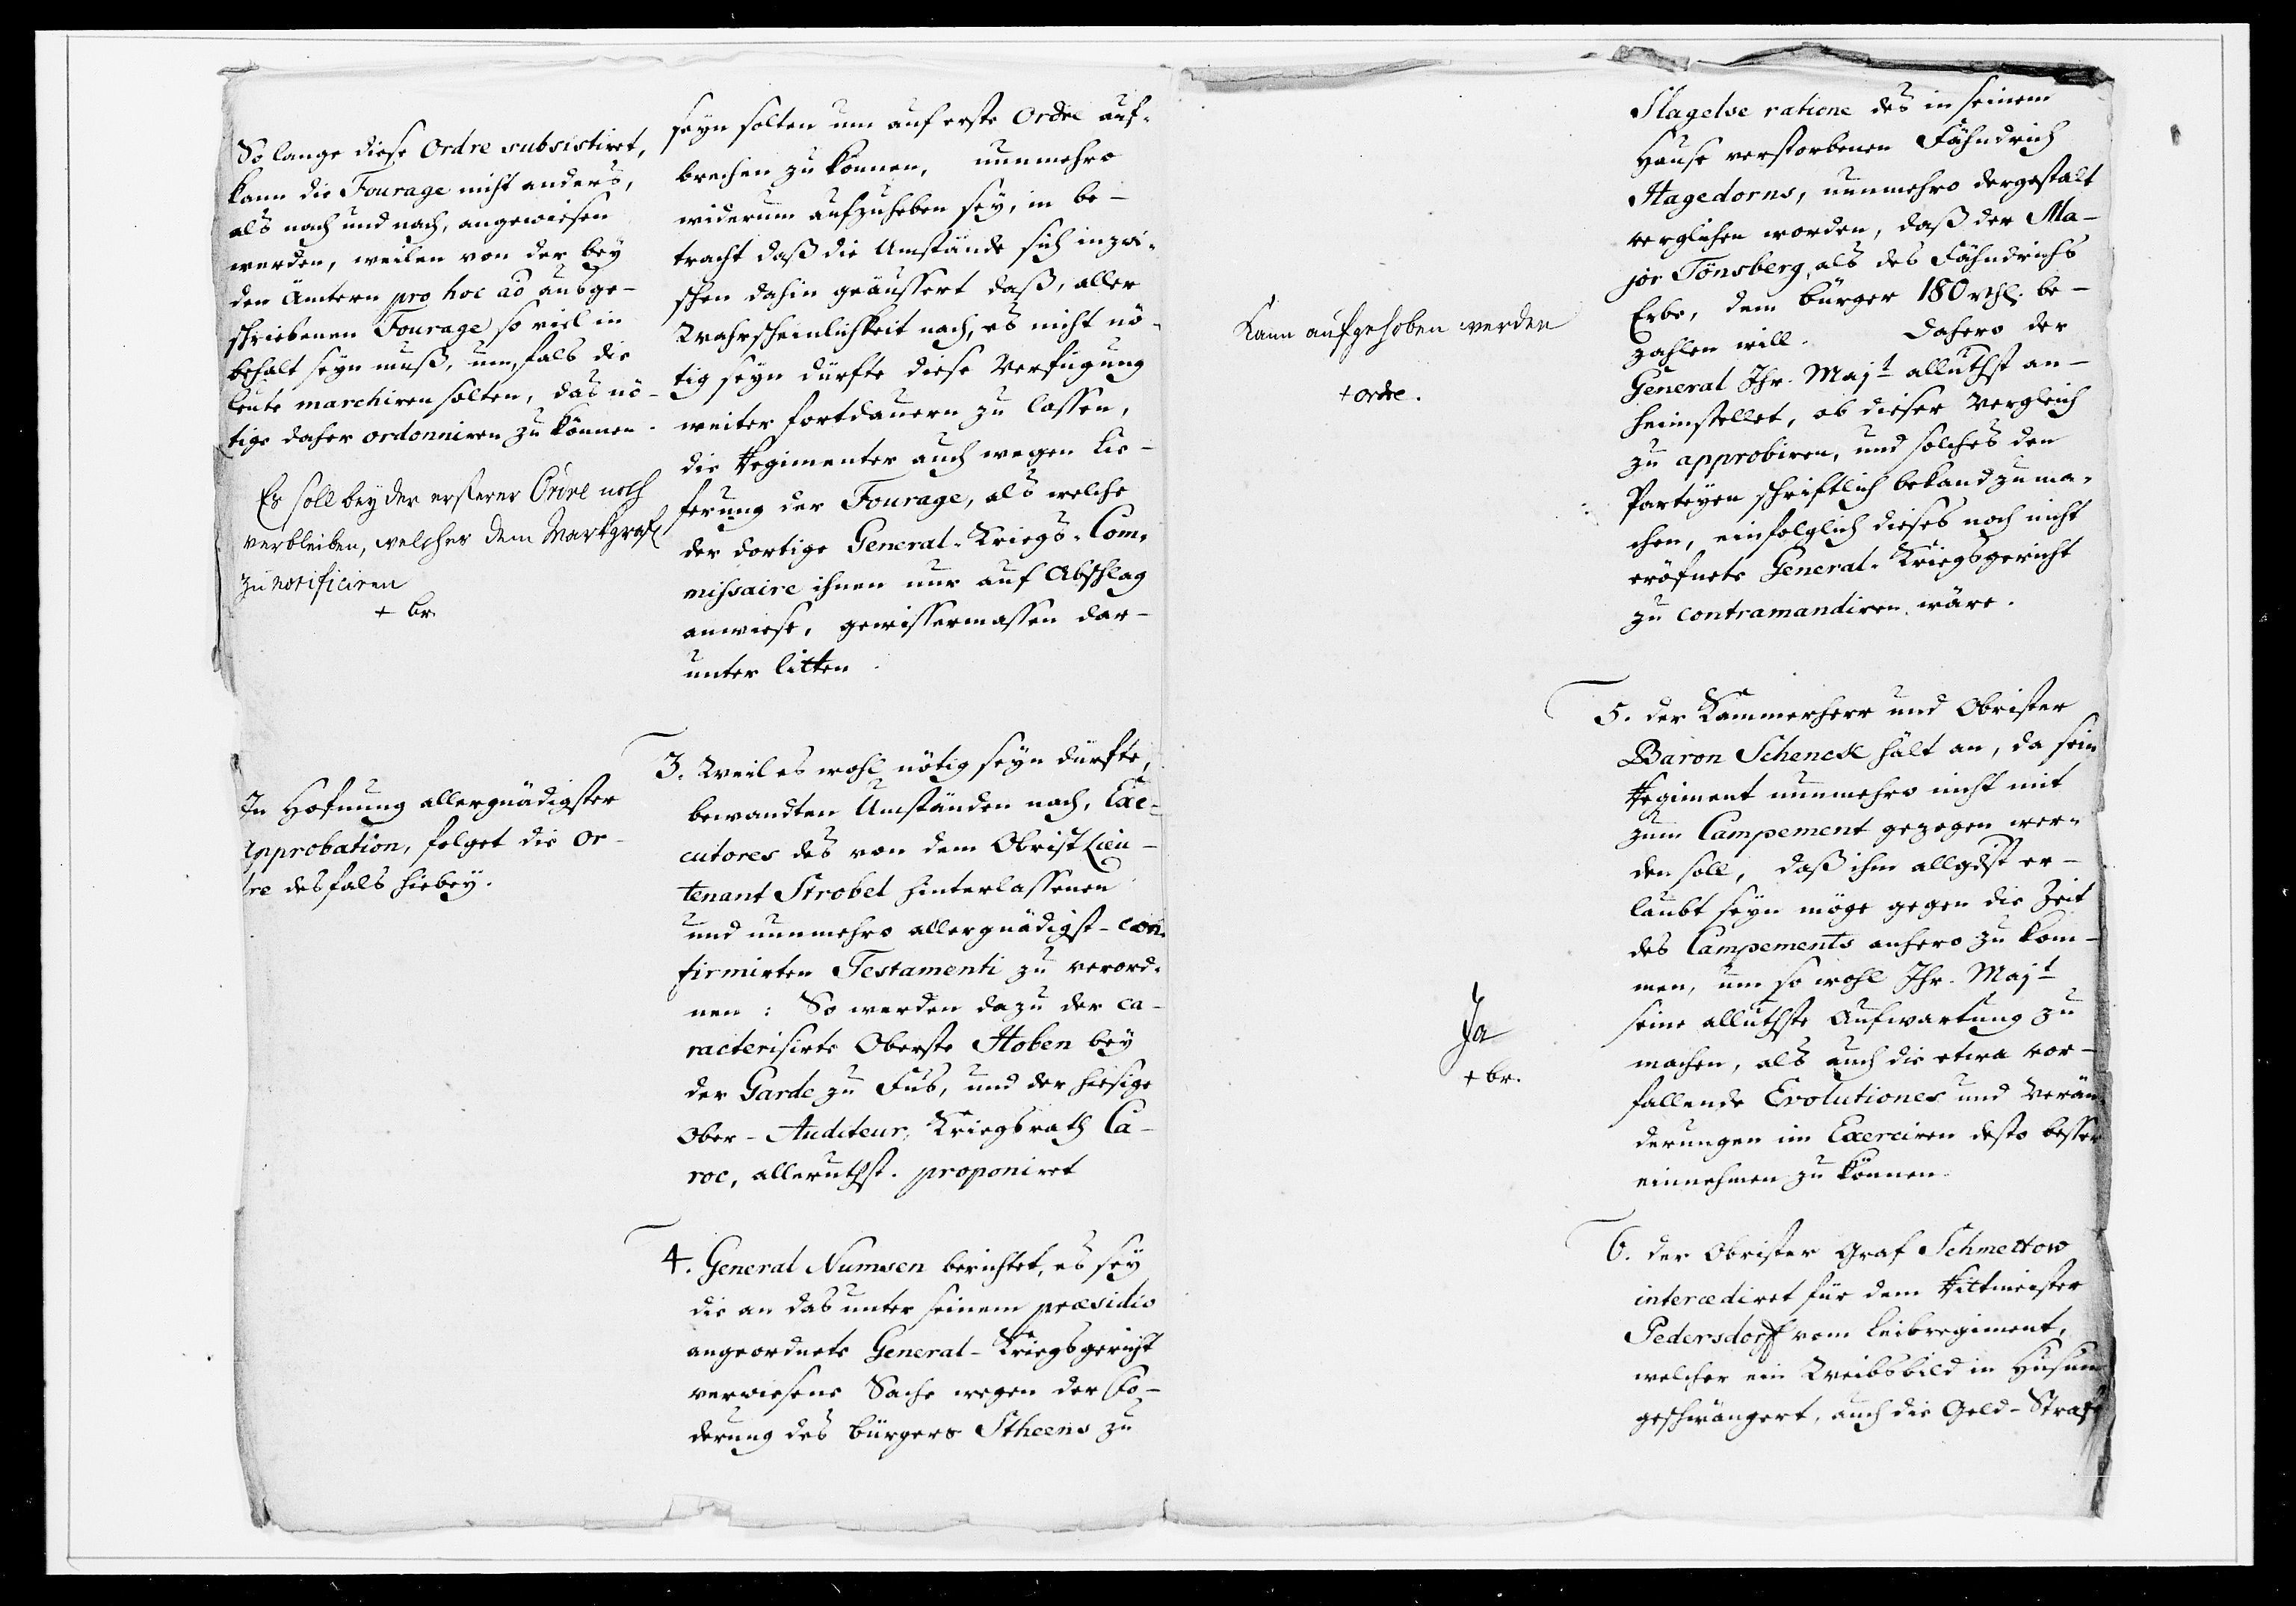 So lange diese Ordre subsistiret,
kann die Fourage nicht anders,
als nach und nach, angewiesen
werden, weilen von der bey
den Ämtern pro hoc ao ausge-
schriebenen Fourage so viel in
behalt seyn muß, um, fals die
leute marchiren solten, das nö-
tige daher ordonniren zu können.
Es soll bey der ersterer Ordre noch
verbleiben, welcher dem Markgraf
zu notificiren
+ br.
In Hofnung allergnädigster
Approbation, folget die Or-
dre desfals hiebey.
seyn solten um auf erste Ordre auf-
brechen zu können, nunmehro
widerum aufzuheben sey, in be-
tracht daß die Umstände sich inzwi-
schen dahin geäussert daß, aller
Wahrscheinlichkeit nach, es nicht nö-
tig seyn dürfte diese Verfügung
weiter fortdauern zu lassen,
die Regimenter auch wegen Lie-
ferung der Fourage, als welche
der dortige General-Kriegs-Com-
missaire ihnen nur auf Abschlag
anwiese, gewissermassen dar-
unter litten.
3. Weil es wohl nötig seyn dürfte,
bewandten Umständen nach, Exe-
cutores des von dem Obrist Lieu-
tenant Strobel hinterlassenen
und nunmehro allergnädigst-con-
firmirten Testamenti zu verord-
nen: So werden dazu der ca-
racterisirte Oberste Hoben bey
der Garde zu Fus, und der hiesige
Ober-Auditeur, Kriegsrath Ca-
roc, alleruthst. proponiret
4. General Numsen berichtet, es sey
die an das unter seinem præsidio
angeordnete General-Kriegsgericht
verwiesene Sache wegen der Fo-
derung des bürgers Stheens zu
Kann aufgehoben werden
+ ordre.
Ja
+ br.
Slagelse ratione des in seinem
Hause verstorbenen Fähndrich
Hagedorns, nunmehro dergestalt
verglichen worden, daß der Ma-
jor Tönsberg, als des Fähndrichs
Erbe, dem bürger 180 rthl. be-
zahlen will. Dahero der
General Ihr. Majt alluthst an-
heimstellet, ob dieser Vergleich
zu approbiren, und solches den
Parteyen schriftlich bekand zu ma-
chen, einfolglich dieses noch nicht
eröfnete General-Kriegsgericht
zu contramandiren wäre.
5. der Kammerherr und Obrister
Baron Schenck hält an, da sein
Regiment nunmehro nicht mit
zum Campement gezogen wer-
den soll, daß ihm allgdst er-
laubt seyn möge gegen die Zeit
des Campements anhero zu kom-
men, um so wohl Ihr. Majt
seine alluthste Aufwartung zu
machen, als auch die etwa vor-
fallende Evolutiones und Verän-
derungen im Exerciren desto besser
einnehmen zu können.
6. der Obrister Graf Schmettow
intercediret für dem Rittmeister
Pedersdorff vom Leibregiment,
welcher ein Weibsbild in Husum
geschwängert, auch die Geld-Strafe